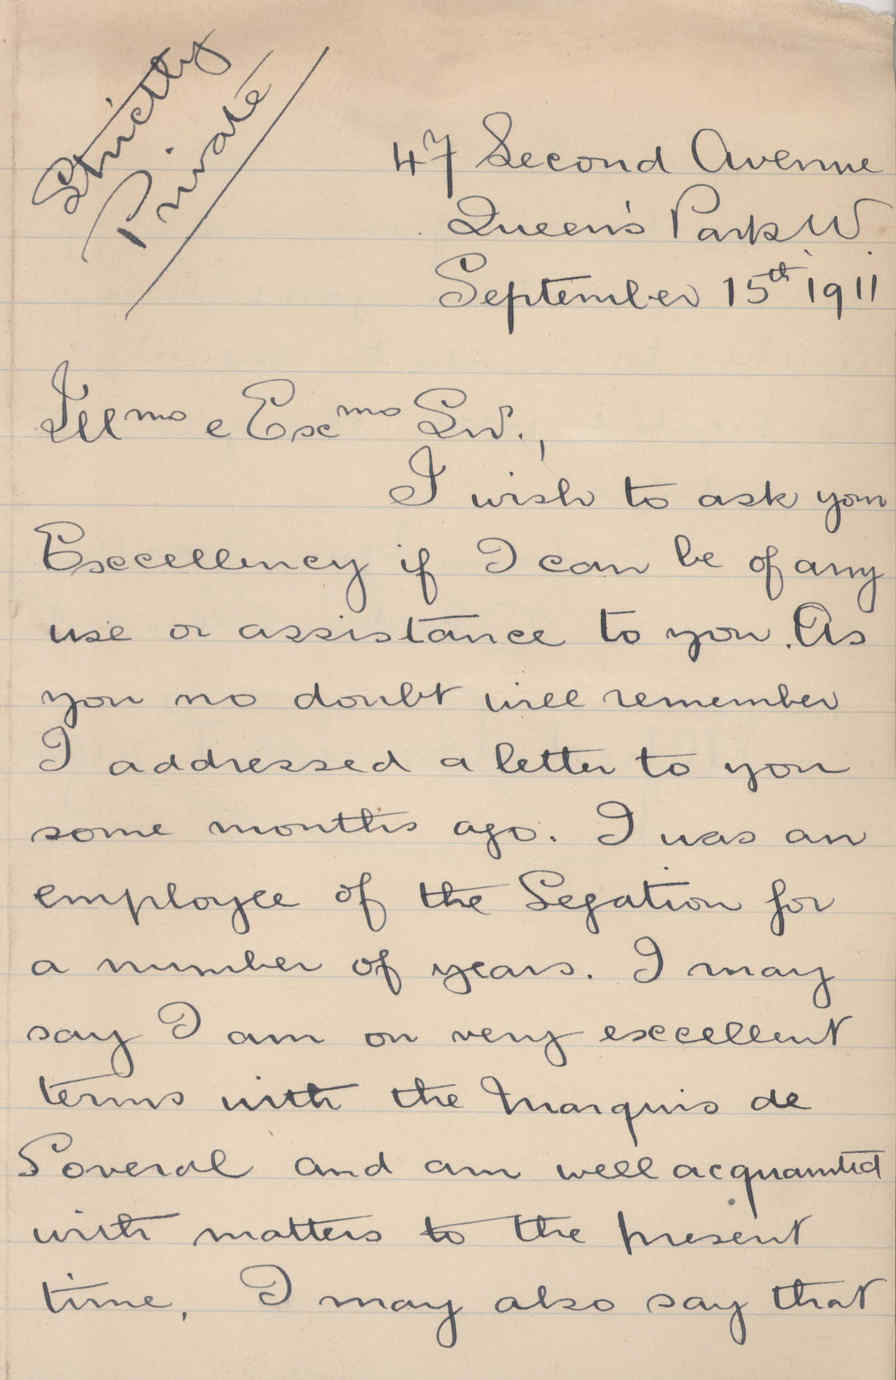 Strictly
Private
47 Second Avenue
Queen's Park W
September 15th 1911
Illmo e Excmo Snr.,
I wish to ask your
Excellency if I can be of any
use or assistance to you. As
you no doubt will remember
I addressed a letter to you
some months ago. I was an
employee of the Legation for
a number of years. I may
say I am on very excellent
terms with the Marquis de
Soveral and am well acquainted
with matters to the present
time, I may also say that